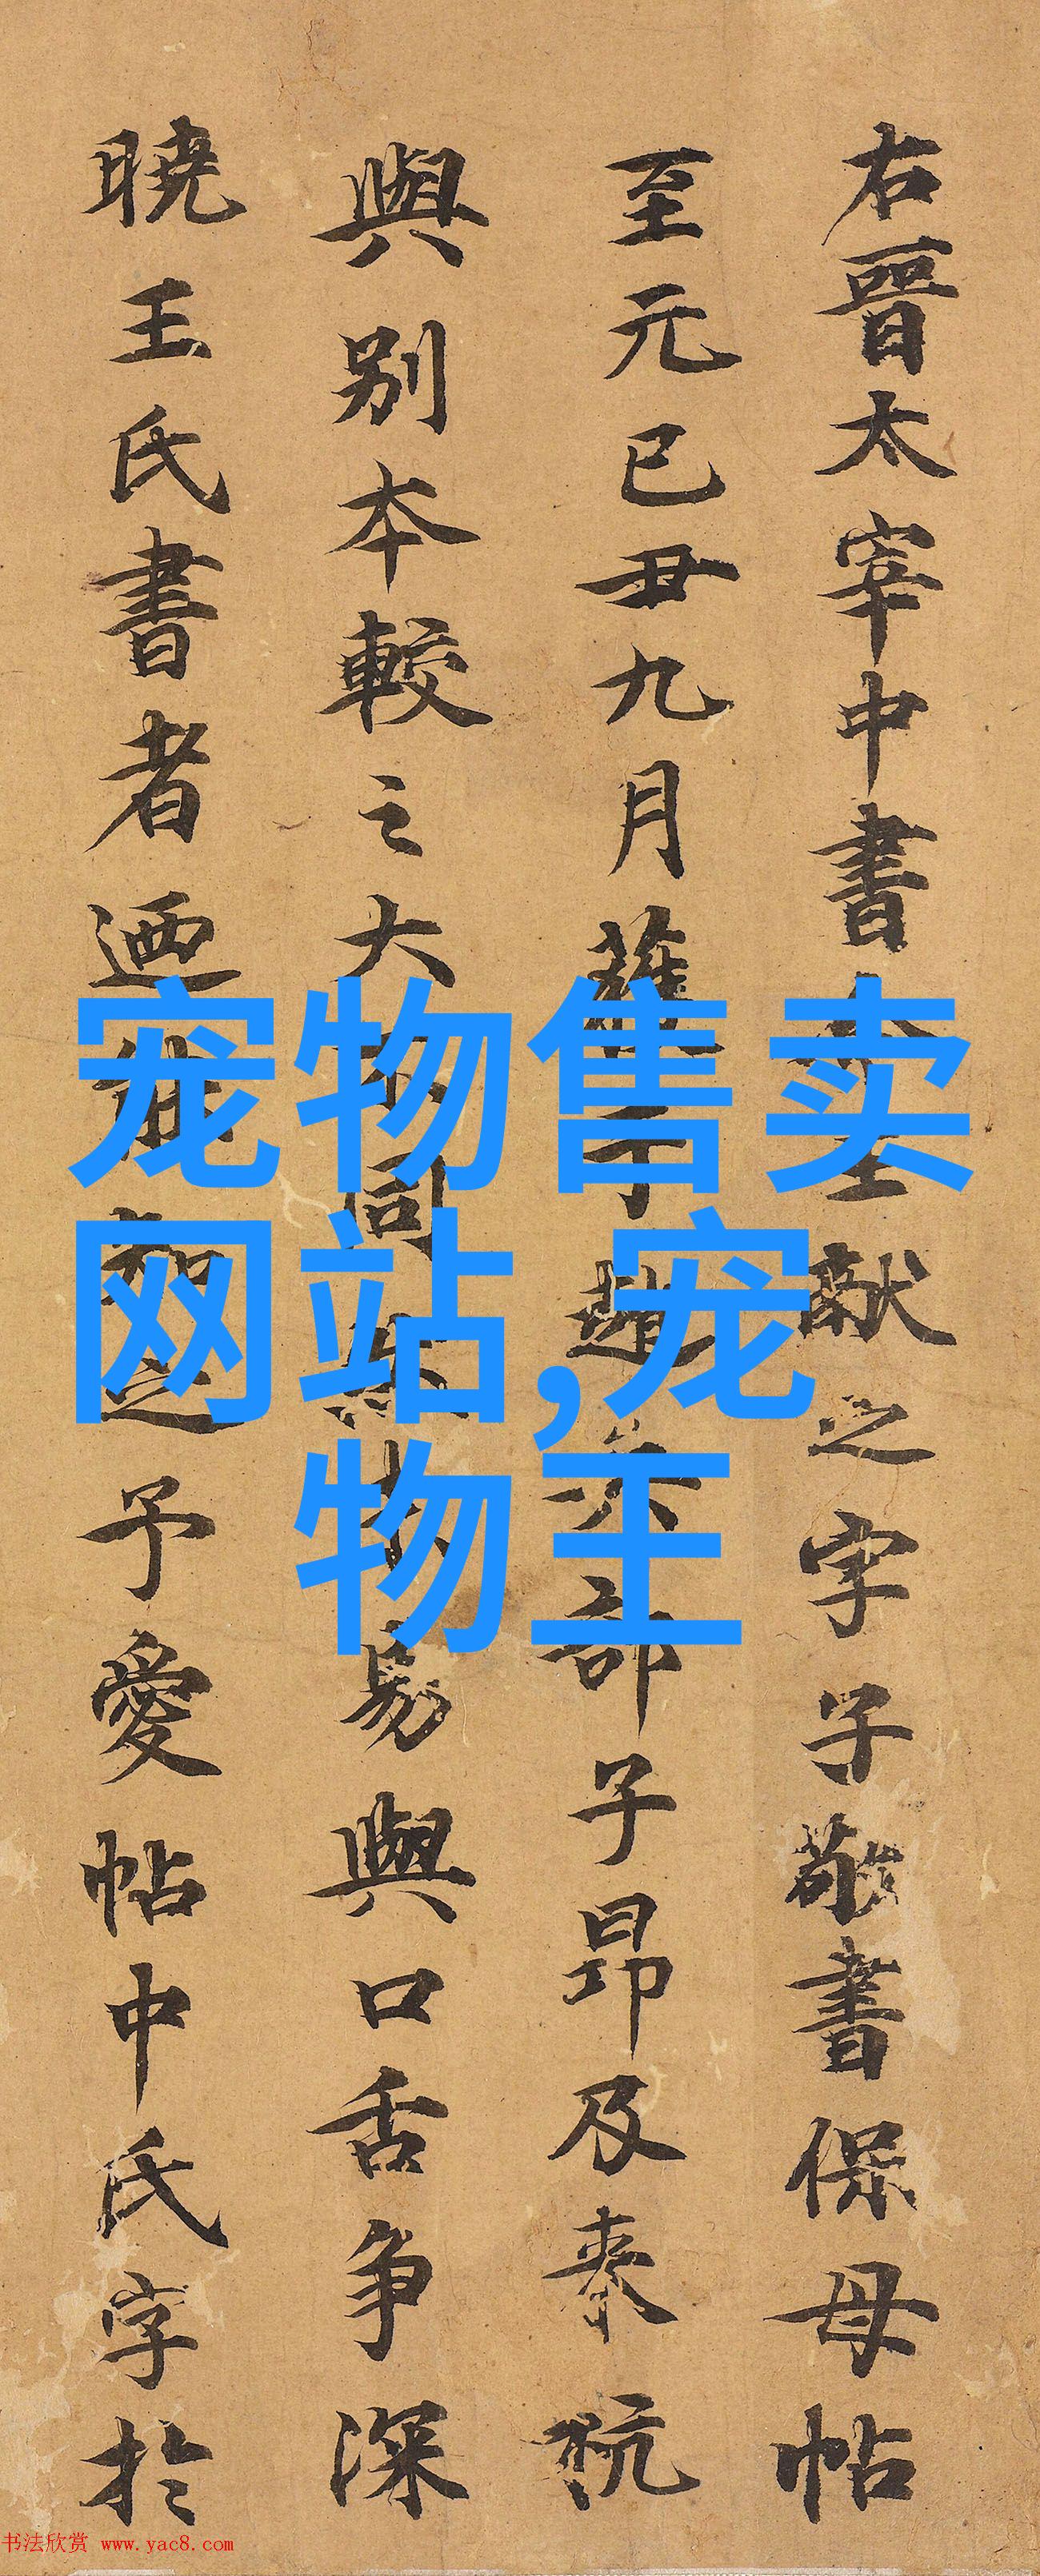 右晉太宰中書令王獻之字子敬書保母帖
至元己丑九月 于趙 部子昂及秦
與別本較之大 不同 易與口舌争深
曉王氏書者迺 知之予愛帖中氏字於
宠物售卖
网站,宠
物王
书法欣赏 www.yac8.com